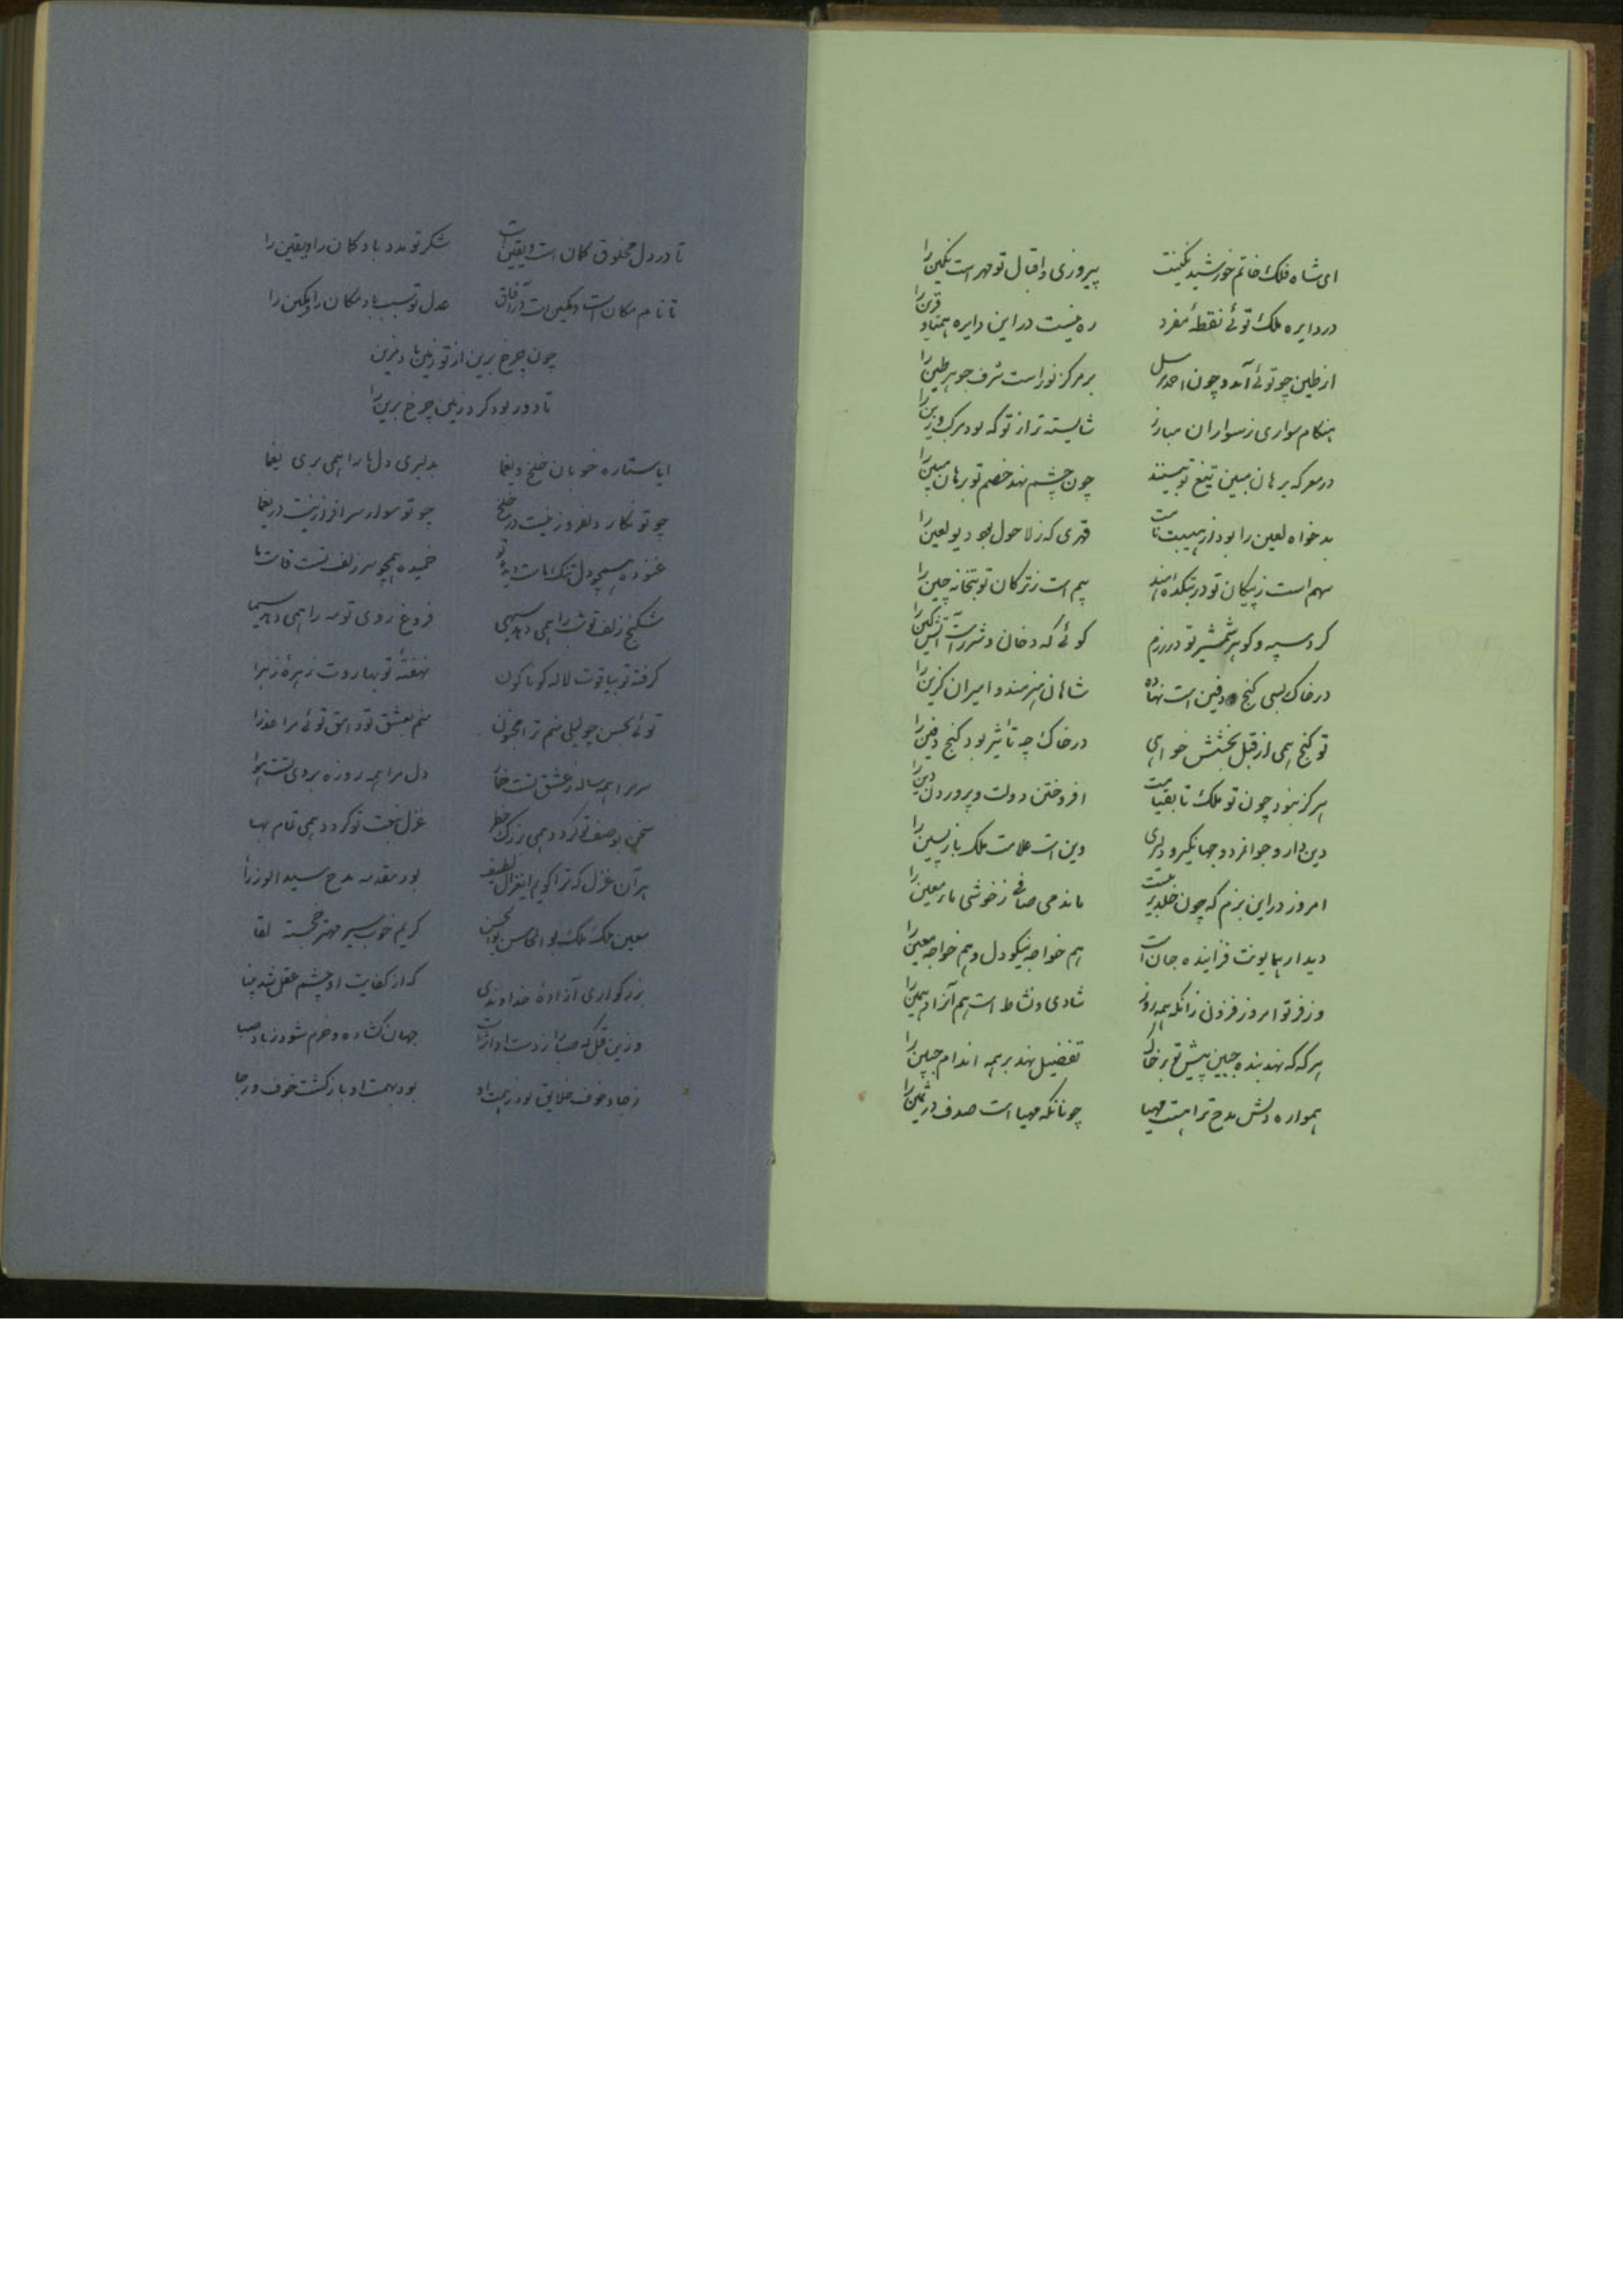 ای شاه فلک خاتم خورشید نگینت پیروزی و اقبال تو مهر است نگین را
در دایره ملک توئی نقطهٔ مفرد ره نیست در این دایره همتا و قرین را
از طین چو توئی آمد و چون احمد مرسل بر مرکز نور است شرف جوهر طین را
هنکام سواری ز سواران مبارز شایسته تر از تو که بود مرکب و زین را
در معرکه برهان مبین تیغ تو بینند چون چشم نهد خصم تو برهان مبین را
بدخواه لعین را بود از هیبت نامت قهری که ز لاحول بود دیو لعین را
سهم است ز پیکان تو در بتکده هند بیم است ز ترکان تو بتخانه چین را
کرد سپه و کوهر شمشیر تو در رزم کوئی که دخان و شرر است آتش کین را
در خاک بسی کنج دفین است نهاده شاهان هنرمند و امیران کزین را
تو کنج همی از قبل بخشش خواهی در خاک چه تأثیر بود کنج دفین را
هرکز نبود چون تو ملک تا بقیامت افروختن دولت و پروردن دین را
دین دار و جوانمرد و جهانکیر و دلیری وین است علامت ملک باز پسین را
امروز در این بزم که چون خلد برینست ماند می صافی ز خوشی ماء معین را
دیدار همایونت فزاینده جان است هم خواجه نیکو دل و هم خواجه معین را
وز فر تو امروز فزون زانکه همه روز شادی و نشاط است هم آنرا هم این را
هر که که نهد بنده جبین پیش تو بر خاک تفضیل نهد بر همه اندام جبین را
همواره دلش مدح ترا هست مهیا چونانکه مهیا است صدف در ثمین را
تا در دل مخلوق کمان است و یقین است شکر تو مدد باد کمان را و یقین را
تا نام مکان است و مکین است در آفاق عدل تو سبب باد مکان را و مکین را
چون چرخ برین از تو زمین باد مزین
تا دور بود کرد زمین چرخ برین را
ایا ستاره خوبان خلخ و یغما بدلبری دل ما را همی بری یغما
چو تو نکار دلفروز نیست در خلخ چو تو سوار سرافراز نیست در یغما
غنوده همچو دل تنک ماست دیده تو خمیده همچو سر زلف تست قامت ما
شکنج زلف تو شب را همی دهد سیهی فروغ روی تو مه را همی دهد سیما
کرفته تو بیاقوت لاله کوناکون نهفتهٔ تو بهاروت زهرهٔ زهرا
توئی بحسن چو لیلی منم ترا مجنون منم بعشق تو وامق توئی مرا عذرا
سر مرا همه ساله ز عشق تست خمار دل مرا همه روزه بروی تست هوا
سخن بوصف تو کردد همی بزرک خطر غزل بنعت تو کردد همی تمام بها
بر آن غزل که ترا کویم ای غزال لطیف بود مقدمه مدح سید الوزرا
معین ملک ملک بوالمحاسن بوالحسن کریم خوب سیر مهتر خجسته لقا
بزرکواری آزادهٔ خداوندی که از کفایت او چشم عقل شد بینا
وزین قبل که صبا را ز دست او اثر است جهان کشاده و خرم شود ز باد صبا
رجا و خوف خلایق بود ز همت او بود بهمت او بازکشت خوف و رجا